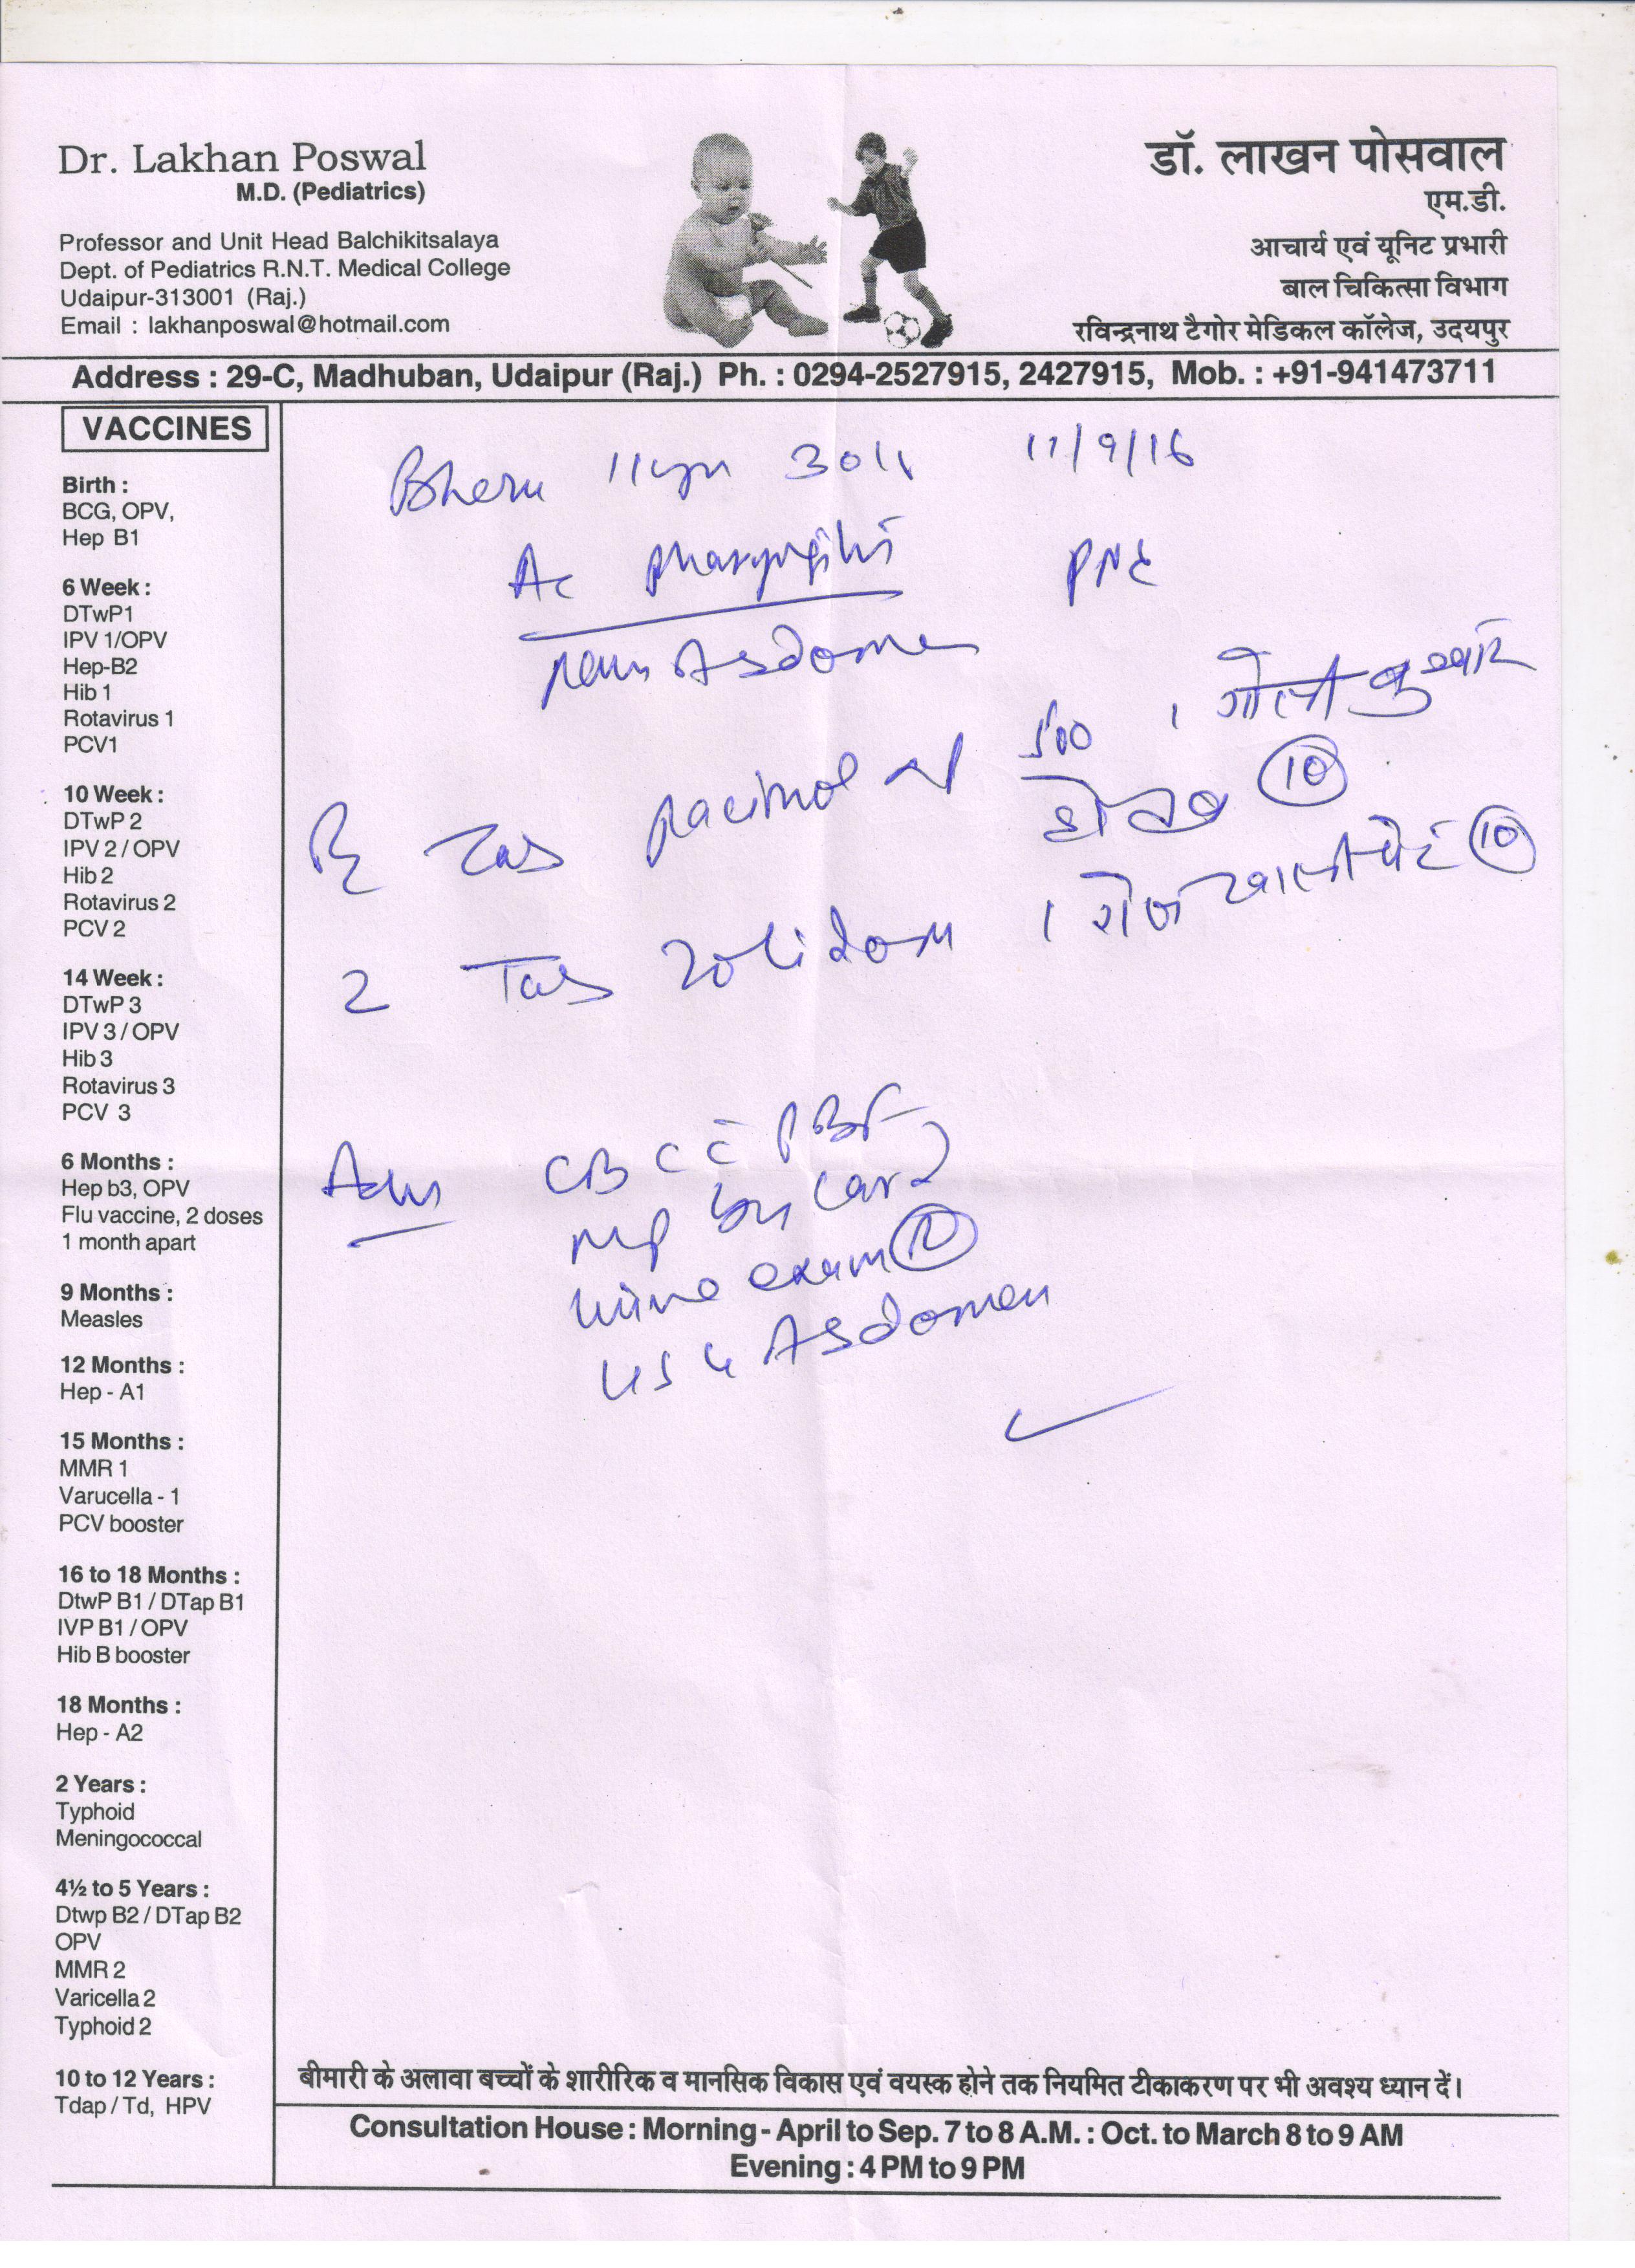 Dr. Lakhan Poswal
M.D. (Pediatrics)
Professor and Unit Head Balchikitsalaya
Dept. of Pediatrics R.N.T. Medical College
Udaipur-313001 (Raj.)
Email : lakhanposwal@hotmail.com
डॉ. लाखन पोसवाल
एम.डी.
आचार्य एवं यूनिट प्रभारी
बाल चिकित्सा विभाग
रविन्द्रनाथ टैगोर मेडिकल कॉलेज, उदयपुर
Address : 29-C, Madhuban, Udaipur (Raj.) Ph. : 0294-2527915, 2427915, Mob. : +91-941473711
VACCINES
Birth :
BCG, OPV,
Hep B1
6 Week :
DTwP1
IPV 1/OPV
Hep-B2
Hib 1
Rotavirus 1
PCV1
10 Week :
DTwP 2
IPV 2 / OPV
Hib 2
Rotavirus 2
PCV 2
14 Week :
DTwP 3
IPV 3 / OPV
Hib 3
Rotavirus 3
PCV 3
6 Months :
Hep b3, OPV
Flu vaccine, 2 doses
1 month apart
9 Months :
Measles
12 Months :
Hep - A1
15 Months :
MMR 1
Varucella - 1
PCV booster
16 to 18 Months :
DtwP B1 / DTap B1
IVP B1 / OPV
Hib B booster
18 Months :
Hep - A2
2 Years :
Typhoid
Meningococcal
4½ to 5 Years :
Dtwp B2 / DTap B2
OPV
MMR 2
Varicella 2
Typhoid 2
10 to 12 Years :
Tdap / Td, HPV
Bheru 11 yr 11/9/16
Ac pharyngitis
pain Abdomen
Tab pacimol 500 1 गोली बुखार
10
2 Tab Zolidom 1 रोज खाली पेट 10
Adv CBC c̄ PBF
MP by card
urine exam
USG Abdomen
बीमारी के अलावा बच्चों के शारीरिक व मानसिक विकास एवं वयस्क होने तक नियमित टीकाकरण पर भी अवश्य ध्यान दें।
Consultation House : Morning - April to Sep. 7 to 8 A.M. : Oct. to March 8 to 9 AM
Evening : 4 PM to 9 PM